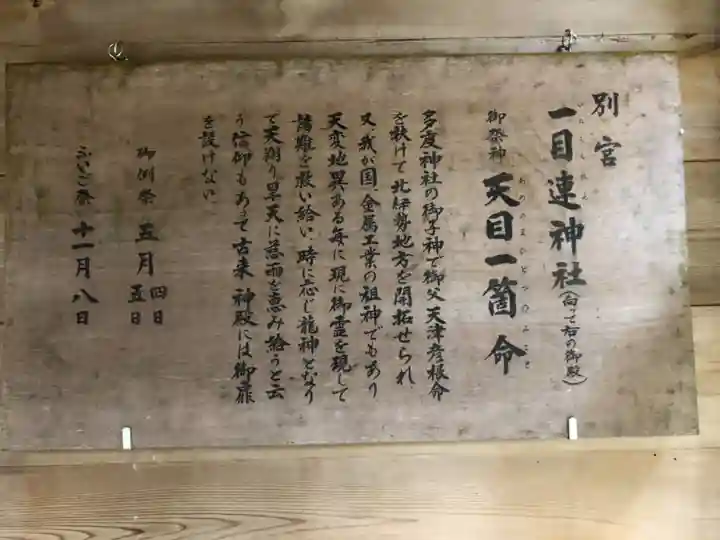 別宮
一目連神社(向って右の御殿)
いちもくれん
御祭神 天目一箇命
あめのまひとつのみこと
多度神社の御子神で御父天津彦根命
を秋けて北伊勢地方を開拓せられ、
又、我が国、金属工業の祖神でもあり
天変地異ある毎に現に御霊を現して
諸難を救い給い、時に応じ龍神となり
て天翔り旱天に慈雨を恵み給うと云
う信仰もあって古来 神殿には御扉
を設けない。
御例祭 五月 四日 五日
ふいご祭 十一月八日